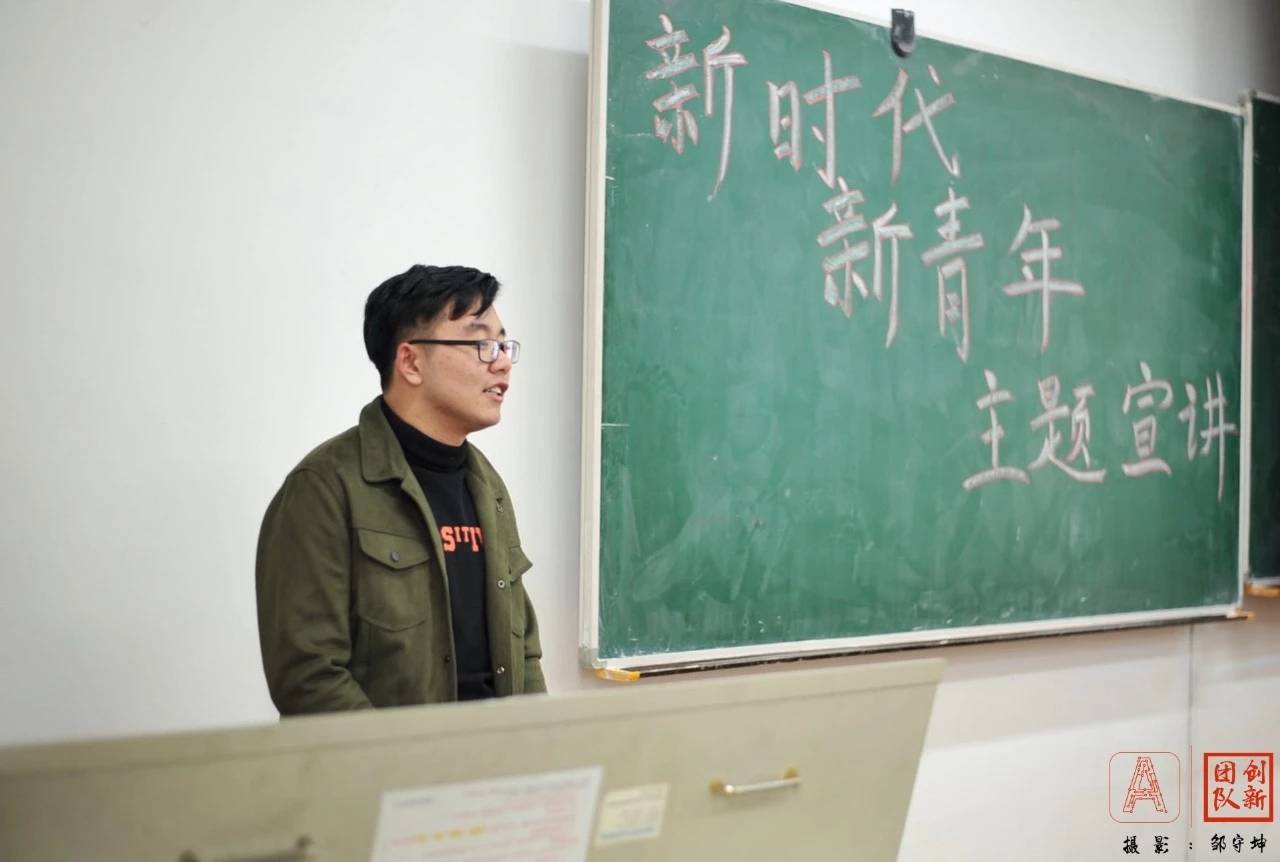 新时代
新青年
主题宣讲
SITIV
A
创新
团队
摄影：邹守坤